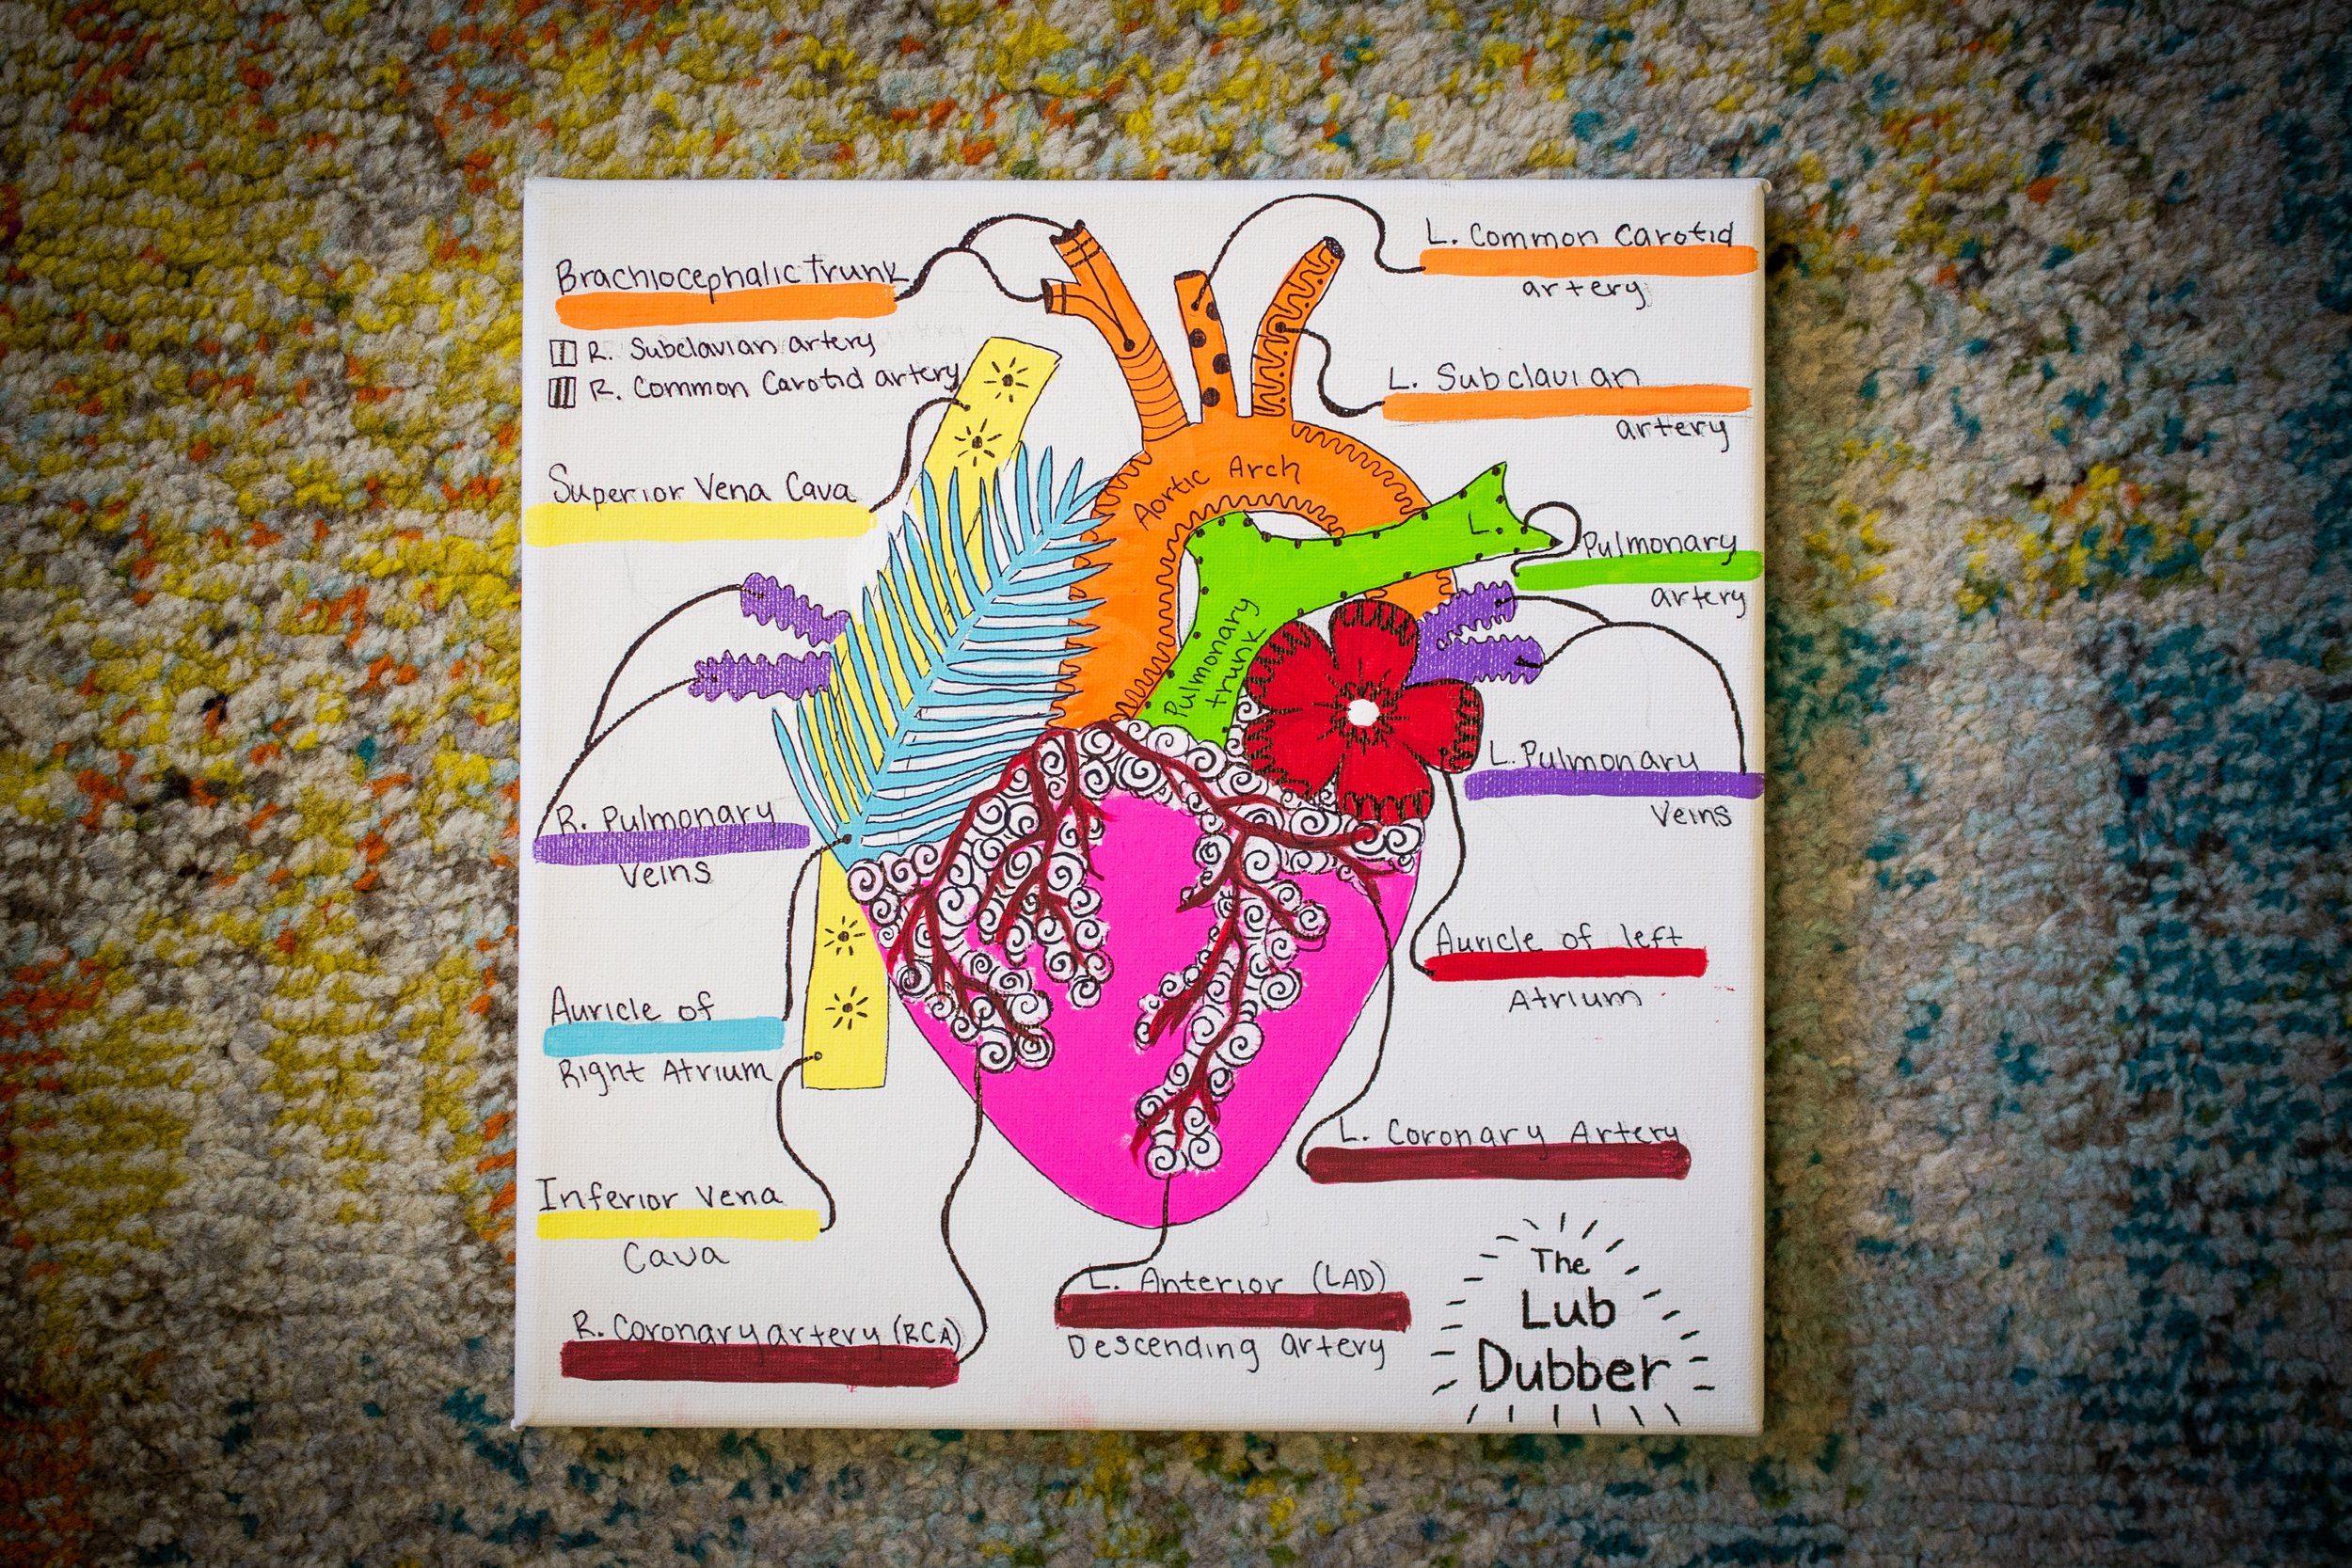 Brachiocephalic Trunk
R. Subclavian artery
R. Common Carotid artery
Superior Vena Cava
R. Pulmonary
Veins
Auricle of
Right Atrium
Inferior Vena
Cava
R. Coronary artery (RCA)
Aortic Arch
L.
Pulmonary
trunk
L. Common Carotid
artery
L. Subclavian
artery
Pulmonary
artery
L. Pulmonary
Veins
Auricle of left
Atrium
L. Coronary Artery
L. Anterior (LAD)
Descending artery
The
Lub
Dubber